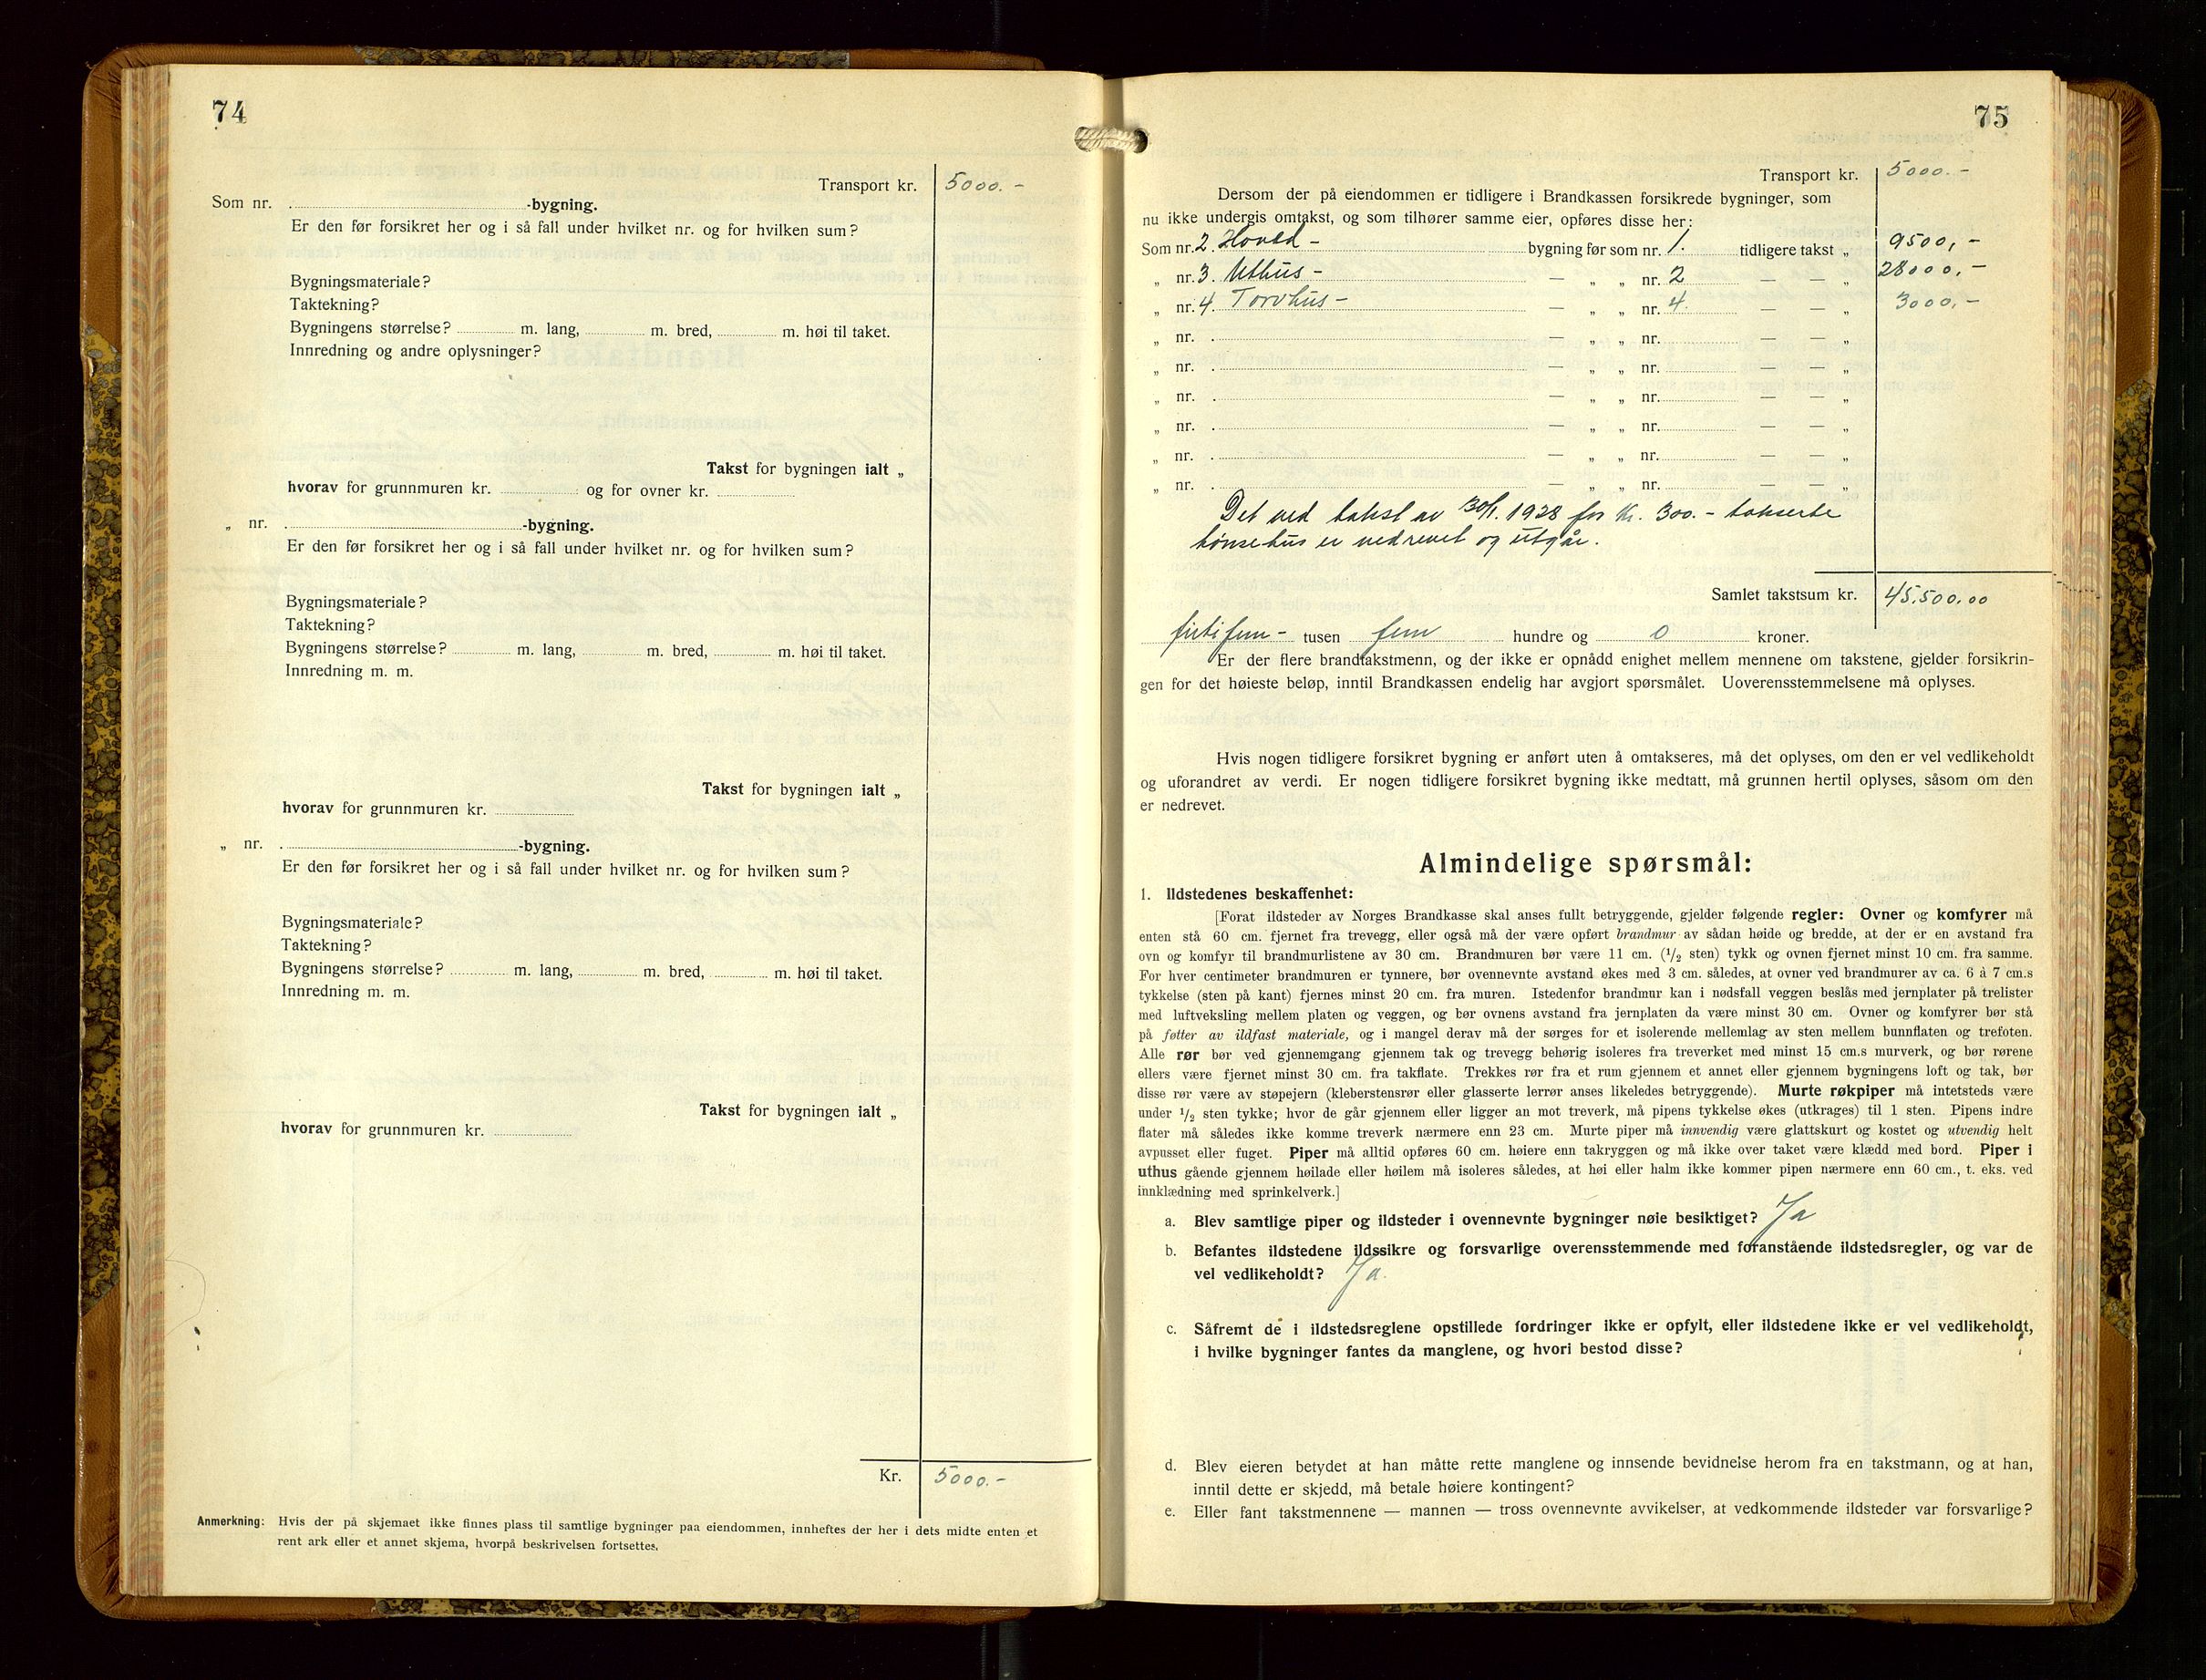 74
Transport kr. 5000.-
Som nr. -bygning.
Er den før forsikret her og i så fall under hvilket nr. og for hvilken sum?
Bygningsmateriale?
Taktekning?
Bygningens størrelse? m. lang, m. bred, m. høi til taket.
Innredning og andre oplysninger?
Takst for bygningen ialt „
hvorav for grunnmuren kr. og for ovner kr.
„ nr. -bygning.
Er den før forsikret her og i så fall under hvilket nr. og for hvilken sum?
Bygningsmateriale?
Taktekning?
Bygningens størrelse? m. lang, m. bred, m. høi til taket.
Innredning m. m.
Takst for bygningen ialt „
hvorav for grunnmuren kr.
„ nr. -bygning.
Er den før forsikret her og i så fall under hvilket nr. og for hvilken sum?
Bygningsmateriale?
Taktekning?
Bygningens størrelse? m. lang, m. bred, m. høi til taket.
Innredning m. m.
Takst for bygningen ialt „
hvorav for grunnmuren kr.
Kr. 5000.-
Anmerkning: Hvis der på skjemaet ikke finnes plass til samtlige bygninger paa eiendommen, innheftes der her i dets midte enten et
rent ark eller et annet skjema, hvorpå beskrivelsen fortsettes.
75
Transport kr. 5000.-
Dersom der på eiendommen er tidligere i Brandkassen forsikrede bygninger, som
nu ikke undergis omtakst, og som tilhører samme eier, opføres disse her:
Som nr. 2. Hoved - bygning før som nr. 1. tidligere takst „ 9500,-
„ nr. 3. Uthus - — „ „ nr. 2 — — „ 28000,-
„ nr. 4. Torvhus - — „ „ nr. 4. — — „ 3000,-
„ nr. — „ „ nr. — — „
„ nr. — „ „ nr. — — „
„ nr. — „ „ nr. — — „
„ nr. — „ „ nr. — — „
„ nr. — „ „ nr. — — „
„ nr. — „ „ nr. — — „
Det ved takst av 30/1. 1928 for kr. 300.- takserte
hønsehus er nedrevet og utgår.
Samlet takstsum kr. 45.500.00
firtifem- tusen fem hundre og 0 kroner.
Er der flere brandtakstmenn, og der ikke er opnådd enighet mellem mennene om takstene, gjelder forsikrin-
gen for det høieste beløp, inntil Brandkassen endelig har avgjort spørsmålet. Uoverensstemmelsene må oplyses.
Hvis nogen tidligere forsikret bygning er anført uten å omtakseres, må det oplyses, om den er vel vedlikeholdt
og uforandret av verdi. Er nogen tidligere forsikret bygning ikke medtatt, må grunnen hertil oplyses, såsom om den
er nedrevet.
Almindelige spørsmål:
1. Ildstedenes beskaffenhet:
[Forat ildsteder av Norges Brandkasse skal anses fullt betryggende, gjelder følgende regler: Ovner og komfyrer må
enten stå 60 cm. fjernet fra trevegg, eller også må der være opført brandmur av sådan høide og bredde, at der er en avstand fra
ovn og komfyr til brandmurlistene av 30 cm. Brandmuren bør være 11 cm. (1/2 sten) tykk og ovnen fjernet minst 10 cm. fra samme.
For hver centimeter brandmuren er tynnere, bør ovennevnte avstand økes med 3 cm. således, at ovner ved brandmurer av ca. 6 à 7 cm.s
tykkelse (sten på kant) fjernes minst 20 cm. fra muren. Istedenfor brandmur kan i nødsfall veggen beslås med jernplater på trelister
med luftveksling mellem platen og veggen, og bør ovnens avstand fra jernplaten da være minst 30 cm. Ovner og komfyrer bør stå
på føtter av ildfast materiale, og i mangel derav må der sørges for et isolerende mellemlag av sten mellem bunnflaten og trefoten.
Alle rør bør ved gjennemgang gjennem tak og trevegg behørig isoleres fra treverket med minst 15 cm.s murverk, og bør rørene
ellers være fjernet minst 30 cm. fra takflate. Trekkes rør fra et rum gjennem et annet eller gjennem bygningens loft og tak, bør
disse rør være av støpejern (kleberstensrør eller glasserte lerrør anses likeledes betryggende). Murte røkpiper må intetsteds være
under 1/2 sten tykke; hvor de går gjennem eller ligger an mot treverk, må pipens tykkelse økes (utkrages) til 1 sten. Pipens indre
flater må således ikke komme treverk nærmere enn 23 cm. Murte piper må innvendig være glattskurt og kostet og utvendig helt
avpusset eller fuget. Piper må alltid opføres 60 cm. høiere enn takryggen og må ikke over taket være klædd med bord. Piper i
uthus gående gjennem høilade eller høilem må isoleres således, at høi eller halm ikke kommer pipen nærmere enn 60 cm., t. eks. ved
innklædning med sprinkelverk.]
a. Blev samtlige piper og ildsteder i ovennevnte bygninger nøie besiktiget? Ja
b. Befantes ildstedene ildssikre og forsvarlige overensstemmende med foranstående ildstedsregler, og var de
vel vedlikeholdt? Ja.
c. Såfremt de i ildstedsreglene opstillede fordringer ikke er opfylt, eller ildstedene ikke er vel vedlikeholdt,
i hvilke bygninger fantes da manglene, og hvori bestod disse?
d. Blev eieren betydet at han måtte rette manglene og innsende bevidnelse herom fra en takstmann, og at han,
inntil dette er skjedd, må betale høiere kontingent?
e. Eller fant takstmennene — mannen — tross ovennevnte avvikelser, at vedkommende ildsteder var forsvarlige?